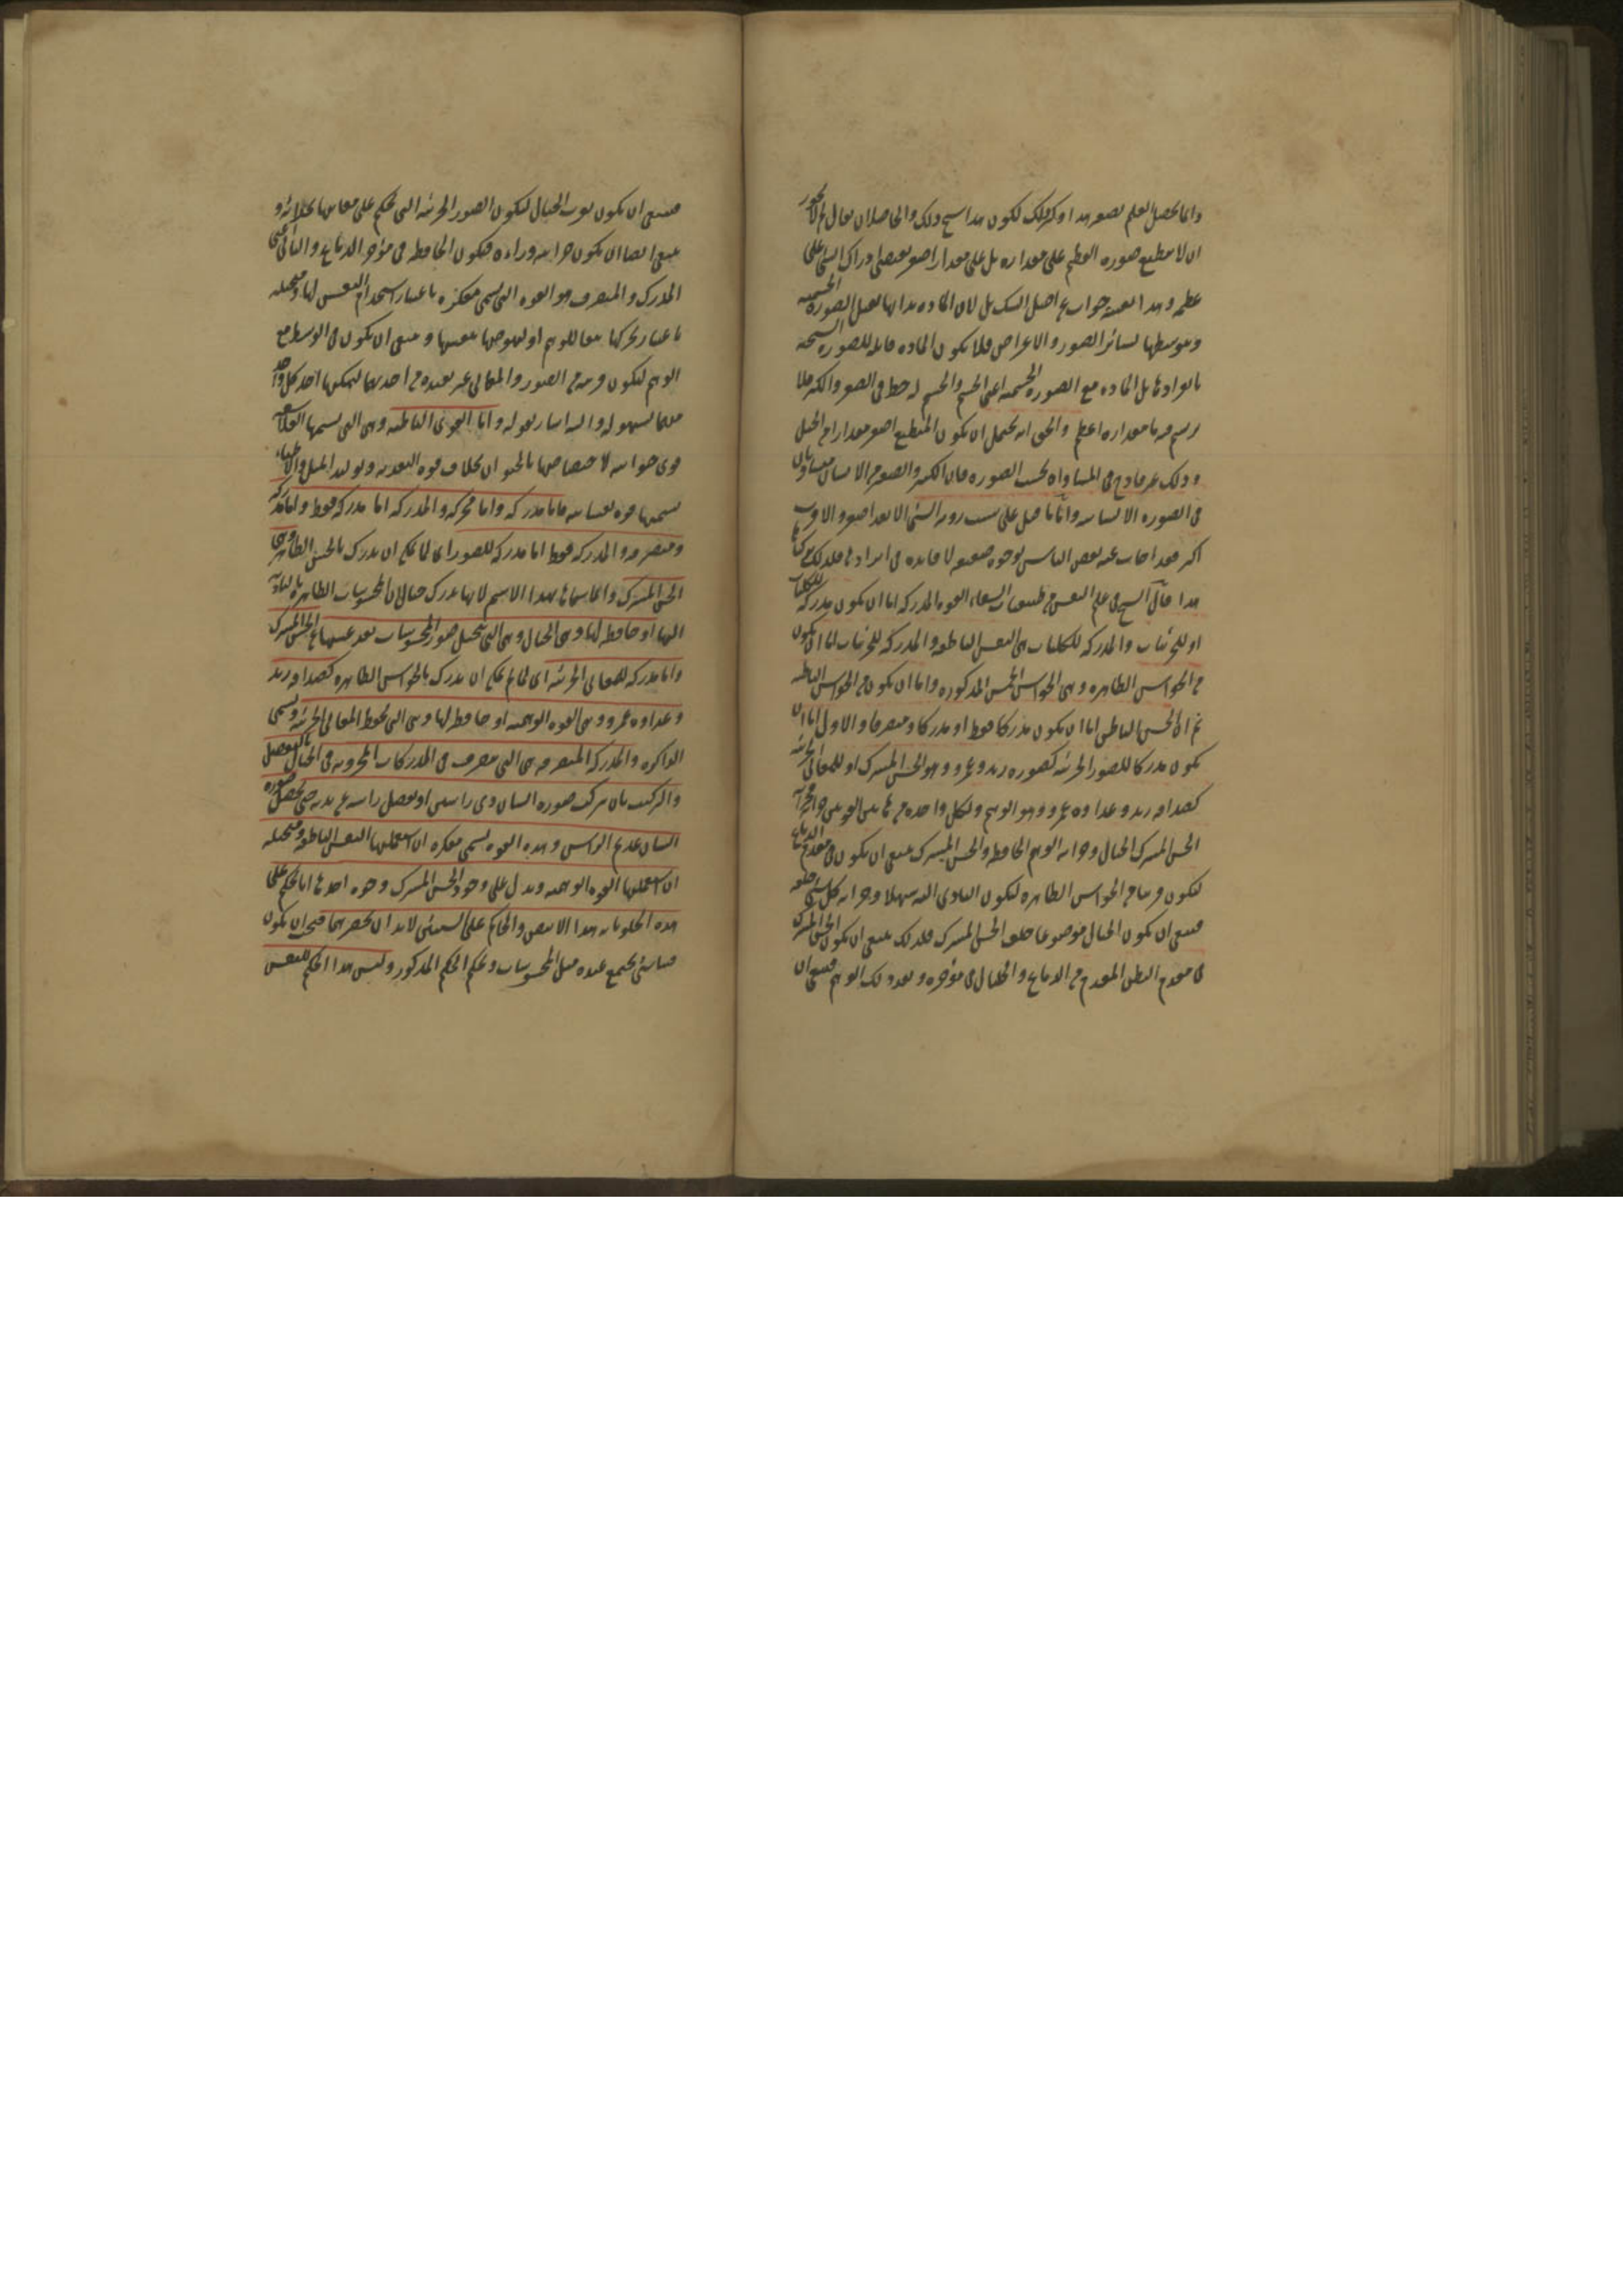 وانما يحصل العلم بصغر هذا وكبر ذلك لكون هذا شبح ذلك والحاصل ان يقال لم لا يجوز
ان لا ينطبع صورة العظيم على مقداره بل على مقدار اصغر يقتضى ادراك الشئ على
عظمه وهذا جواب عن اصل الشك بل لان المادة بذاتها تقبل الصورة الجسمية
وبتوسطها لسائر الصور والاعراض فلا يكون المادة قابلة للصورة
بانفرادها بل المادة مع الصورة الجسمية اعنى الجسم والجسم له حظ فى الصغر والكبر فلا
يرتسم فيه ما مقداره اعظم والحق انه يحتمل ان يكون المنطبع اصغر مقدارا من الجبل
وذلك غير قادح فى المساواة بحسب الصورة فان الكبير والصغير من الانسان متساويان
فى الصورة الانسانية واما ما قيل على سبب رؤية الشئ الابعد اصغر والاقرب
اكبر فقد اجاب عنه بعض الناس بوجوه ضعيفة لا فائدة فى ايرادها فلذلك تركناها
هذا قال الشيخ فى علم النفس من طبيعيات الشفاء القوة المدركة اما ان يكون مدركة للكليات
او للجزئيات والمدركة للكليات هى النفس الناطقة والمدركة للجزئيات اما ان يكون
من الحواس الظاهرة وهى الحواس الخمس المذكورة واما ان يكون من الحواس الباطنة
ثم ان الحس الباطن اما ان يكون مدركا فقط او مدركا ومتصرفا والاول اما ان
يكون مدركا للصور الجزئية كصورة زيد وعمرو وهو الحس المشترك او للمعانى الجزئية
كصداقة زيد وعداوة عمرو وهو الوهم ولكل واحدة من هاتين القوتين خزانة
الحس المشترك الخيال وخزانة الوهم الحافظة والحس المشترك ينبغى ان يكون فى مقدم الدماغ
ليكون قريبا من الحواس الظاهرة ليكون التادى اليه سهلا وخزانة كل شئ خلفه
فينبغى ان يكون الخيال موضوعا خلف الحس المشترك فلذلك ينبغى ان يكون الحس المشترك
فى مقدم البطن المقدم من الدماغ والخيال فى مؤخره وبعد ذلك الوهم فينبغى ان
فينبغى ان يكون بقرب الخيال ليكون الصور الجزئية التى يحكم على معانيها بحذائه و
ينبغى ايضا ان يكون خزانته وراءه فيكون الحافظة فى مؤخر الدماغ والثانى اعنى
المدرك والمتصرف هو القوة التى تسمى مفكرة باعتبار استخدام النفس لها ومتخيلة
باعتبار تحركها تبعا للوهم او لنهوضها بنفسها وينبغى ان يكون فى الوسط مع
الوهم ليكون قريبة من الصور والمعانى غير بعيدة من احديهما ليمكنها اخذ كل واحد
منهما بسهولة واليه اشار بقوله واما القوى الباطنة وهى التى يسميها الفلاسفة
قوى حيوانية لاختصاصها بالحيوان بخلاف قوة التغذية وتوليد المثل والاطباء
يسمونها قوة نفسانية فاما مدركة واما محركة والمدركة اما مدركة فقط واما مدركة
ومتصرفة والمدركة فقط اما مدركة للصور اى لما يمكن ان يدرك بالحس الظاهر وهى
الحس المشترك وانما سماها بهذا الاسم لانها تدرك خيالات المحسوسات الظاهرة بالتادية
اليها او حافظة لها وهى الخيال وهى التى تتخيل صور المحسوسات بعد غيبتها عن الحس المشترك
واما مدركة للمعانى الجزئية اى لما لم يمكن ان يدرك بالحواس الظاهرة كصداقة زيد
وعداوة عمرو وهى القوة الوهمية او حافظة لها وهى التى تحفظ المعانى الجزئية ويسمى
الذاكرة والمدركة المتصرفة هى التى تتصرف فى المدركات المخزونة فى الخيال بالتفصيل
والتركيب بان تركب صورة انسان ذى راسين او تفصل راسه عن بدنه حتى يحصل صورة
انسان عديم الراس وهذه القوة يسمى مفكرة ان استعملتها النفس الناطقة ومتخيلة
ان استعملتها القوة الوهمية ويدل على وجود الحس المشترك وجوه احدها انا نحكم على
هذه الحلو بانه هذا الابيض والحاكم على الشيئين لابد ان يحضرهما فيجب ان يكون
فينا شئ يجتمع عنده مثل المحسوسات ويحكم الحكم المذكور وليس هذا الحكم للنفس